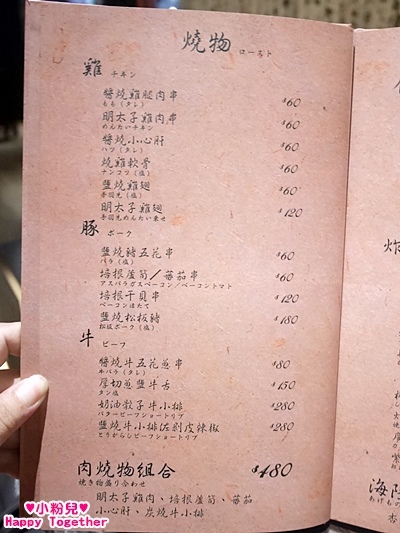 燒物 ロースト
雞 チキン
醬燒雞腿肉串 $60
もも（タレ）
明太子雞肉串 $60
めんたいチキン
醬燒小心肝 $60
ハツ（タレ）
燒雞軟骨 $60
ナンコツ（塩）
鹽燒雞翅 $60
手羽先（塩）
明太子雞翅 $120
手羽先めんたい乗せ
豚 ポーク
鹽燒豬五花串 $60
バラ（塩）
培根蘆筍／蕃茄串 $60
アスパラガスベーコン／ベーコントマト
培根干貝串 $120
ベーコンほたて
鹽燒松板豬 $180
松坂ポーク（塩）
牛 ビーフ
醬燒牛五花蔥串 $80
牛バラ（タレ）
厚切蔥鹽牛舌 $150
タン塩
奶油骰子牛小排 $280
バタービーフショートリブ
鹽燒牛小排佐剝皮辣椒 $280
とうがらしビーフショートリブ
肉燒物組合 $480
焼き物盛り合わせ
明太子雞肉、培根蘆筍、蕃茄
小心肝、炭燒牛小排
炸
海陸
あげもの
♥小粉兒♥
Happy Together